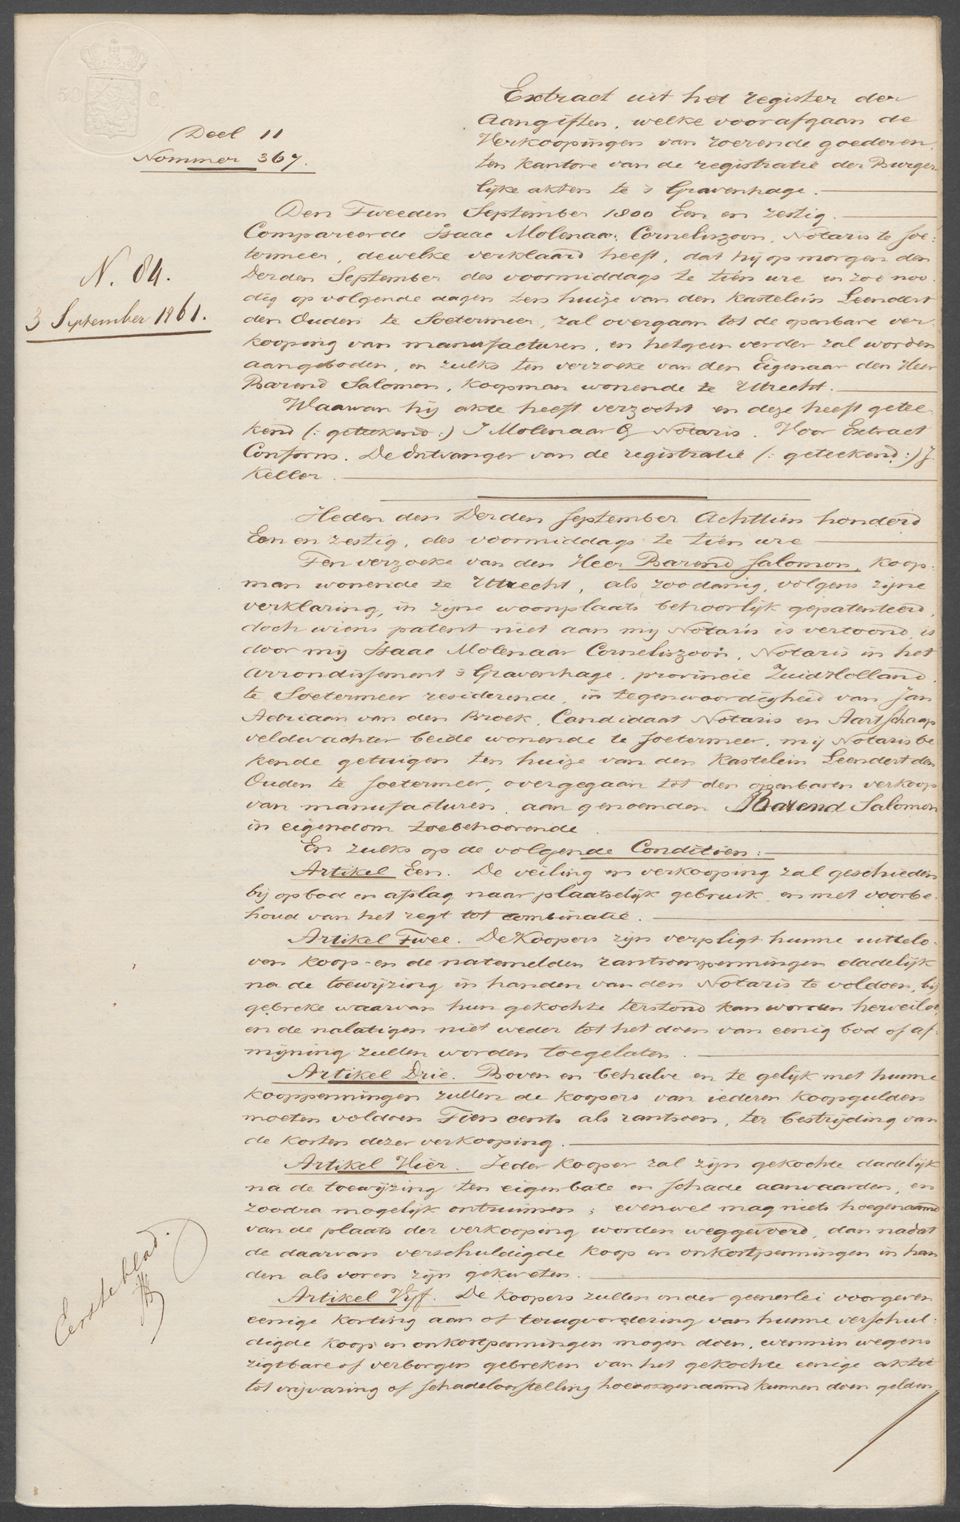 50 C.
Deel 11
Nommer 367.
Extract uit het register der
Aangiften, welke voorafgaan de
Verkoopingen van roerende goederen,
ten kantore van de registratie der Burger
lijke akten te 's Gravenhage.
Den Tweeden September 1800 Een en zestig.
Compareerde Isaac Molenaar Corneliszoon, Notaris te Soe:
termeer, dewelke verklaard heeft, dat hij op morgen den
Derden September des voormiddags te tien ure en zoo noo
dig op volgende dagen ten huize van den Kastelein Leendert
den Ouden te Soetermeer, zal overgaan tot de openbare ver
kooping van manufacturen, en hetgeen verder zal worden
aangeboden, en zulks ten verzoeke van den Eigenaar den Heer
Barend Salomon, Koopman wonende te Utrecht.
Waarvan hij akte heeft verzocht en deze heeft getee
kend (: geteekend :) I Molenaar Cz Notaris. Voor Extract
Conform. De Ontvanger van de registratie (: geteekend :) J.
Keller.
N. 84.
3 September 1861.
Heden den Derden September Achttien honderd
Een en zestig, des voormiddags te tien ure
Ten verzoeke van den Heer Barend Salomon, Koop-
man wonende te Utrecht, als zoodanig, volgens zijne
verklaring, in zijne woonplaats behoorlijk gepatenteerd,
doch wiens patent niet aan mij Notaris is vertoond, is
door mij Isaac Molenaar Corneliszoon, Notaris in het
arrondissement 's Gravenhage, provincie Zuid Holland,
te Soetermeer residerende, in tegenwoordigheid van Jan
Adriaan van den Broek, Candidaat Notaris en Aart Schaap
veldwachter beide wonende te Soetermeer, mij Notaris be
kende getuigen ten huize van den Kastelein Leendert den
Ouden te Soetermeer, overgegaan tot den openbaren verkoop
van manufacturen, aan genoemden Barend Salomon
in eigendom toebehoorende
En zulks op de volgende Conditien:
Artikel Een. De veiling en verkooping zal geschieden
bij opbod en afslag naar plaatselijk gebruik, en met voorbe-
houd van het regt tot combinatie.
Artikel Twee. De Koopers zijn verpligt hunne uittelo-
ven koop- en de natemelden rantsoenpenningen dadelijk
na de toewijzing in handen van den Notaris te voldoen, bij
gebreke waarvan hun gekochte terstond kan worden herveild,
en de nalatigen niet weder tot het doen van eenig bod of af-
mijning zullen worden toegelaten.
Artikel Drie. Boven en behalve en te gelijk met hunne
kooppenningen zullen de koopers van iederen koopgulden
moeten voldoen Tien cents als rantsoen, ter bestrijding van
de kosten dezer verkooping.
Artikel Vier. Ieder kooper zal zijn gekochte dadelijk
na de toewijzing ten eigenbate en schade aanvaarden, en
zoodra mogelijk ontruimen; evenwel mag niets hoegenaamd
van de plaats der verkooping worden weggevoerd, dan nadat
de daarvan verschuldigde koop en onkostpenningen in han
den als voren zijn gekweten.
Artikel Vijf. De koopers zullen onder geenerlei voorgeven
eenige korting aan of terugvordering van hunne verschul-
digde koop en onkostpenningen mogen doen, evenmin wegens
zigtbare of verborgen gebreken van het gekochte eenige aktie
tot vrijwaring of schadeloosstelling hoe ook genaamd kunnen doen gelden
Eerste blad.